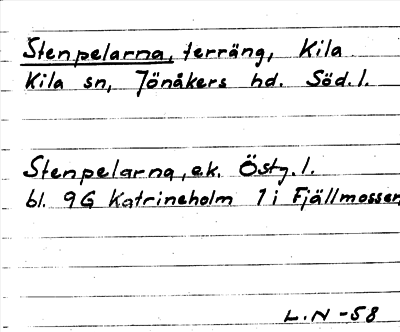 Stenpelarna, terräng, Kila
Kila sn, Jönåkers hd. Söd.l.
Stenpelarna, ek. Östg.l.
bl. 9G Katrineholm 1i Fjällmossen
L.N -58